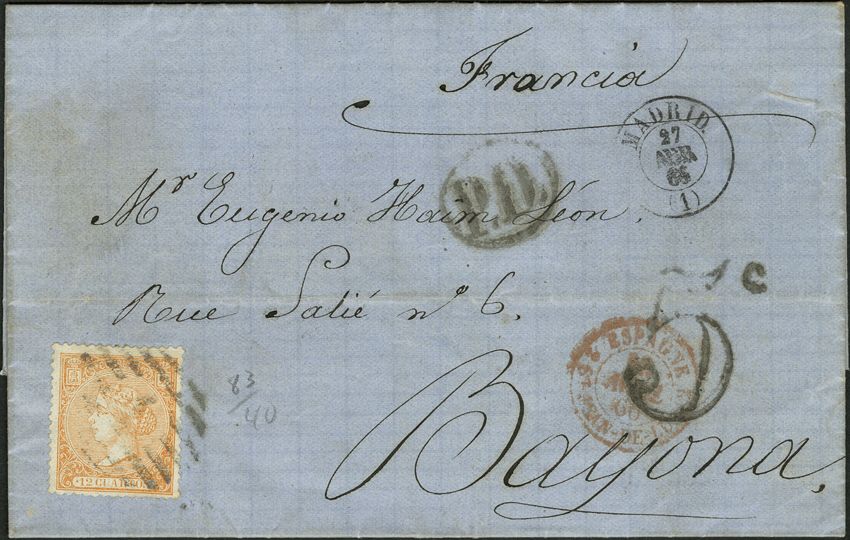 Francia
MADRID.
27
ABR
66
(1)
P.D.
Mr Eugenio Haim León.
Rue Salié nº 6.
5 C
ESPAGNE
83/40
12 CUARTOS
Bayona,